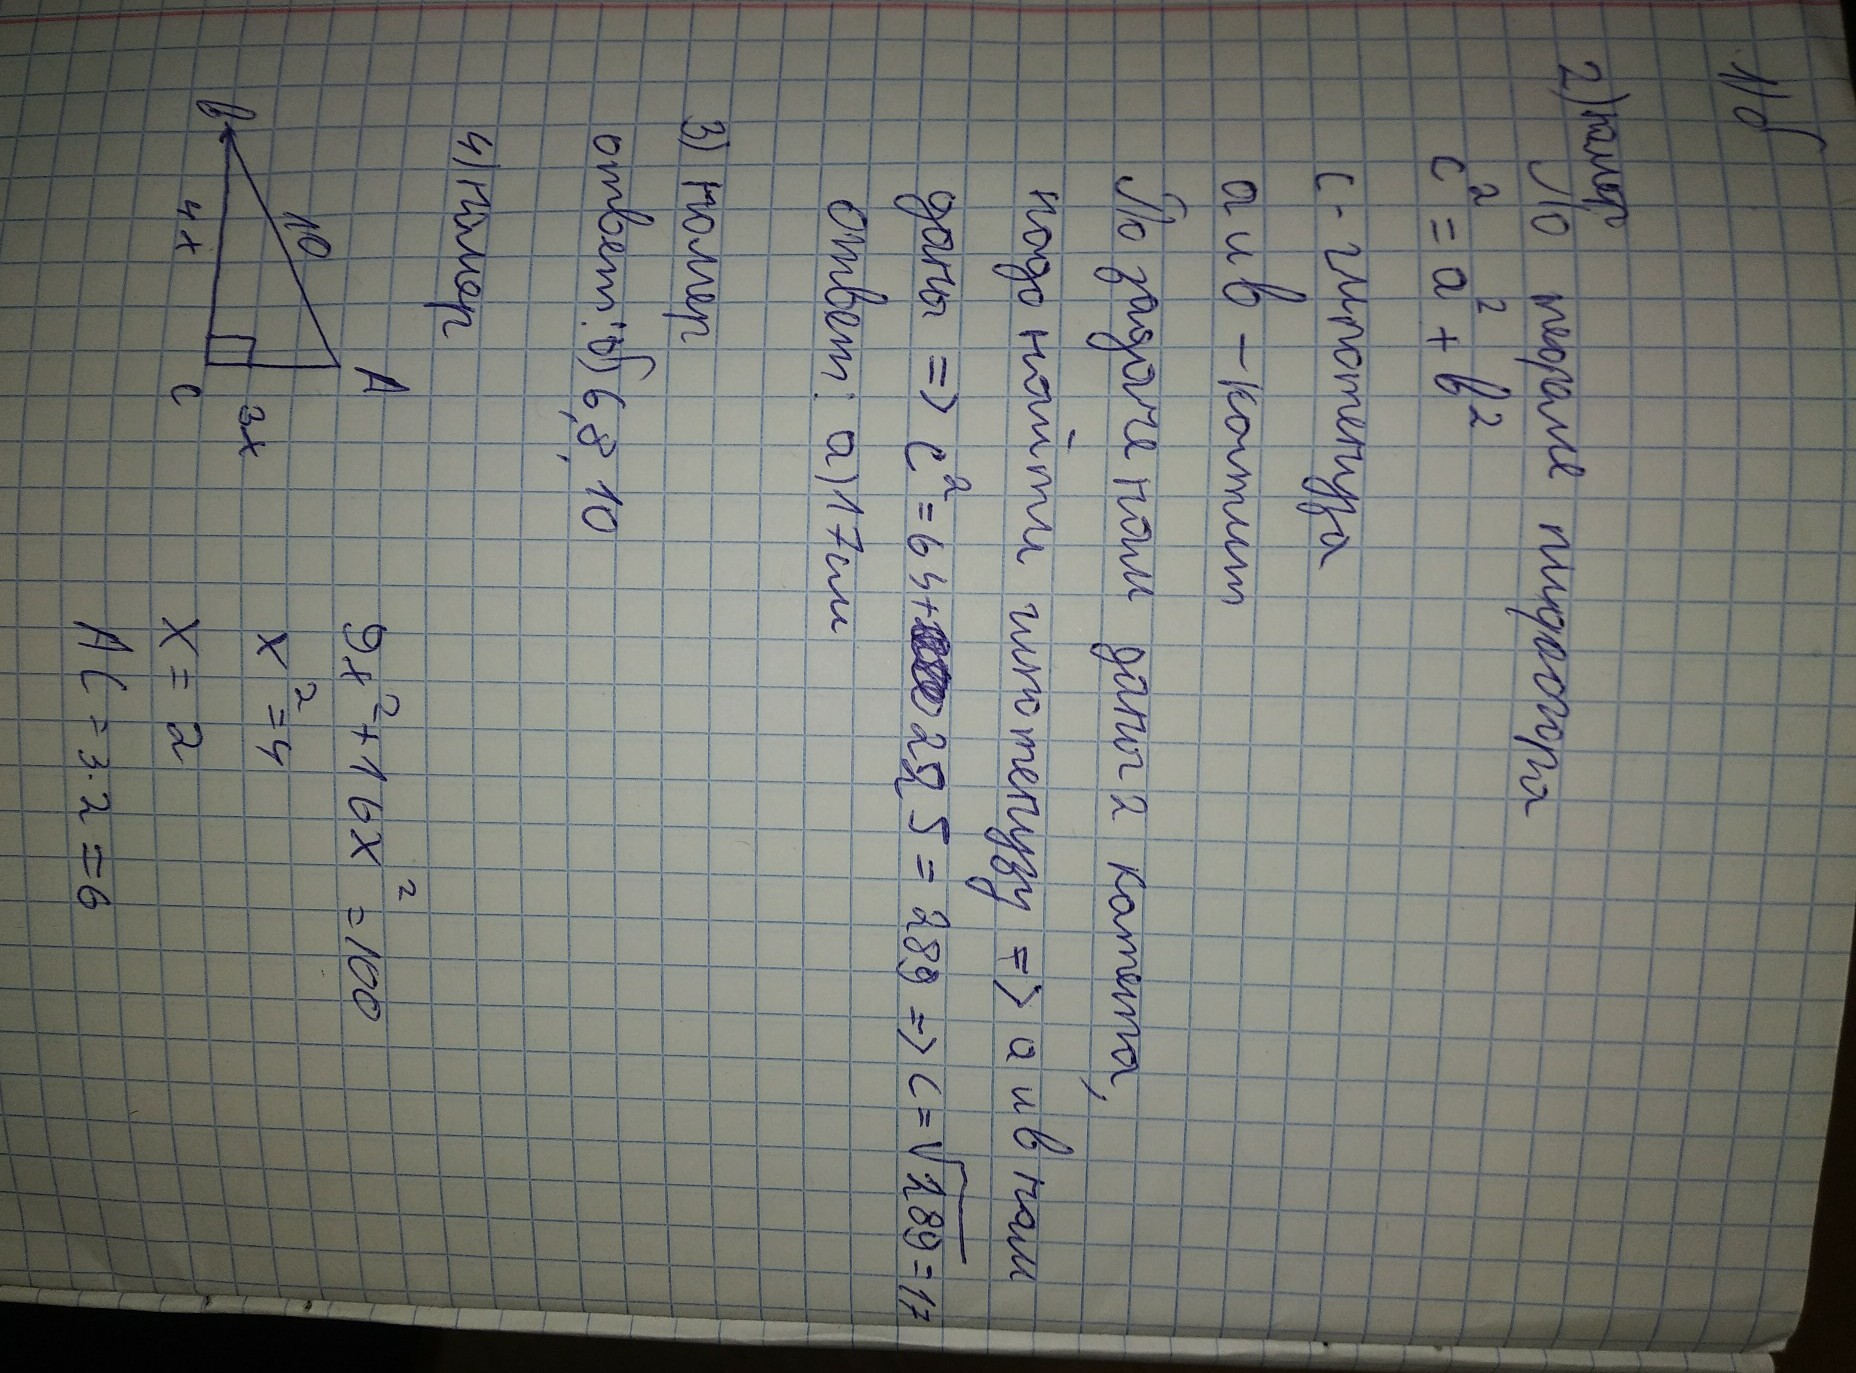 1) б
2) номер
По теореме пифагора
c² = a² + b²
c - гипотенуза
а и в - катет
По задаче нам даны 2 катета,
надо найти гипотенузу => а и в нам
даны => c² = 64 + 225 = 289 => c = √289 = 17
Ответ: а) 17см
3) номер
ответ: б) 6, 8, 10
4) номер
B
10
A
4x
C
3x
9x² + 16x² = 100
x² = 4
x = 2
AC = 3·2 = 6